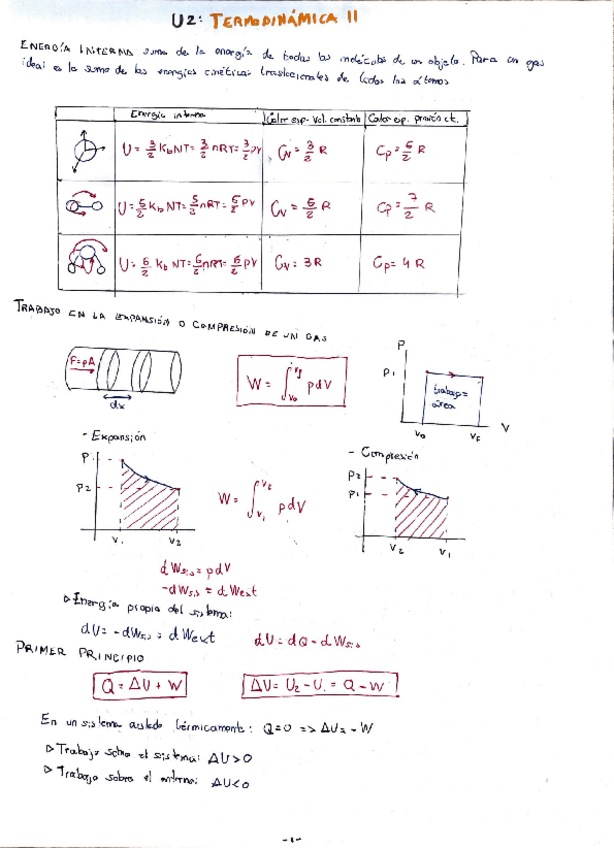 U2: TERMODINÁMICA II
ENERGÍA INTERNA suma de la energía de todas las moléculas de un objeto. Para un gas
ideal es la suma de las energías cinéticas traslacionales de todos los átomos
Energía interna Calor esp. Vol. constante Calor esp. presión ct.
U = 3/2 K_b NT = 3/2 nRT = 3/2 pV C_V = 3/2 R C_p = 5/2 R
U = 5/2 K_b NT = 5/2 nRT = 5/2 PV C_V = 5/2 R C_P = 7/2 R
U = 6/2 K_b NT = 6/2 nRT = 6/2 PV C_V = 3R C_p = 4R
TRABAJO EN LA EXPANSIÓN O COMPRESIÓN DE UN GAS
F=pA
dx
W = ∫_{V_0}^{V_f} p dV
P
P1
trabajo =
área
V0 VF V
- Expansión
P1
P2
V1 V2
W = ∫_{V_1}^{V_2} p dV
- Compresión
P2
P1
V2 V1
dWsis = pdV
-dWsis = dWext
▷ Energía propia del sistema:
dU = -dWsis = dWext dU = dQ - dWsis
PRIMER PRINCIPIO
Q = ΔU + W ΔU = U2 - U1 = Q - W
En un sistema aislado térmicamente: Q=0 => ΔU = -W
▷ Trabajo sobre el sistema: ΔU>0
▷ Trabajo sobre el entorno: ΔU<0
-1-